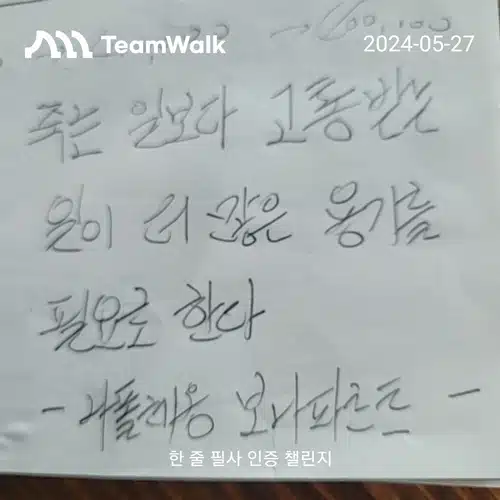 TeamWalk
2024-05-27
죽는 일보다 고통받는
일이 더 많은 용기를
필요로 한다
- 나폴레옹 보나파르트 -
한 줄 필사 인증 챌린지